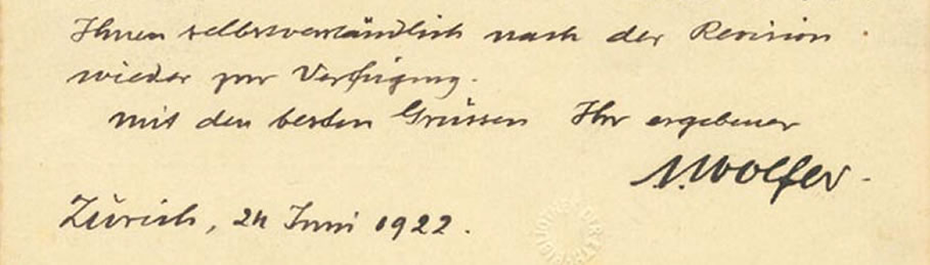 Ihnen selbstverständlich nach der Revision
wieder zur Verfügung.
mit den besten Grüssen Ihr ergebener
A. Wolfer.
Zürich, 24 Juni 1922.